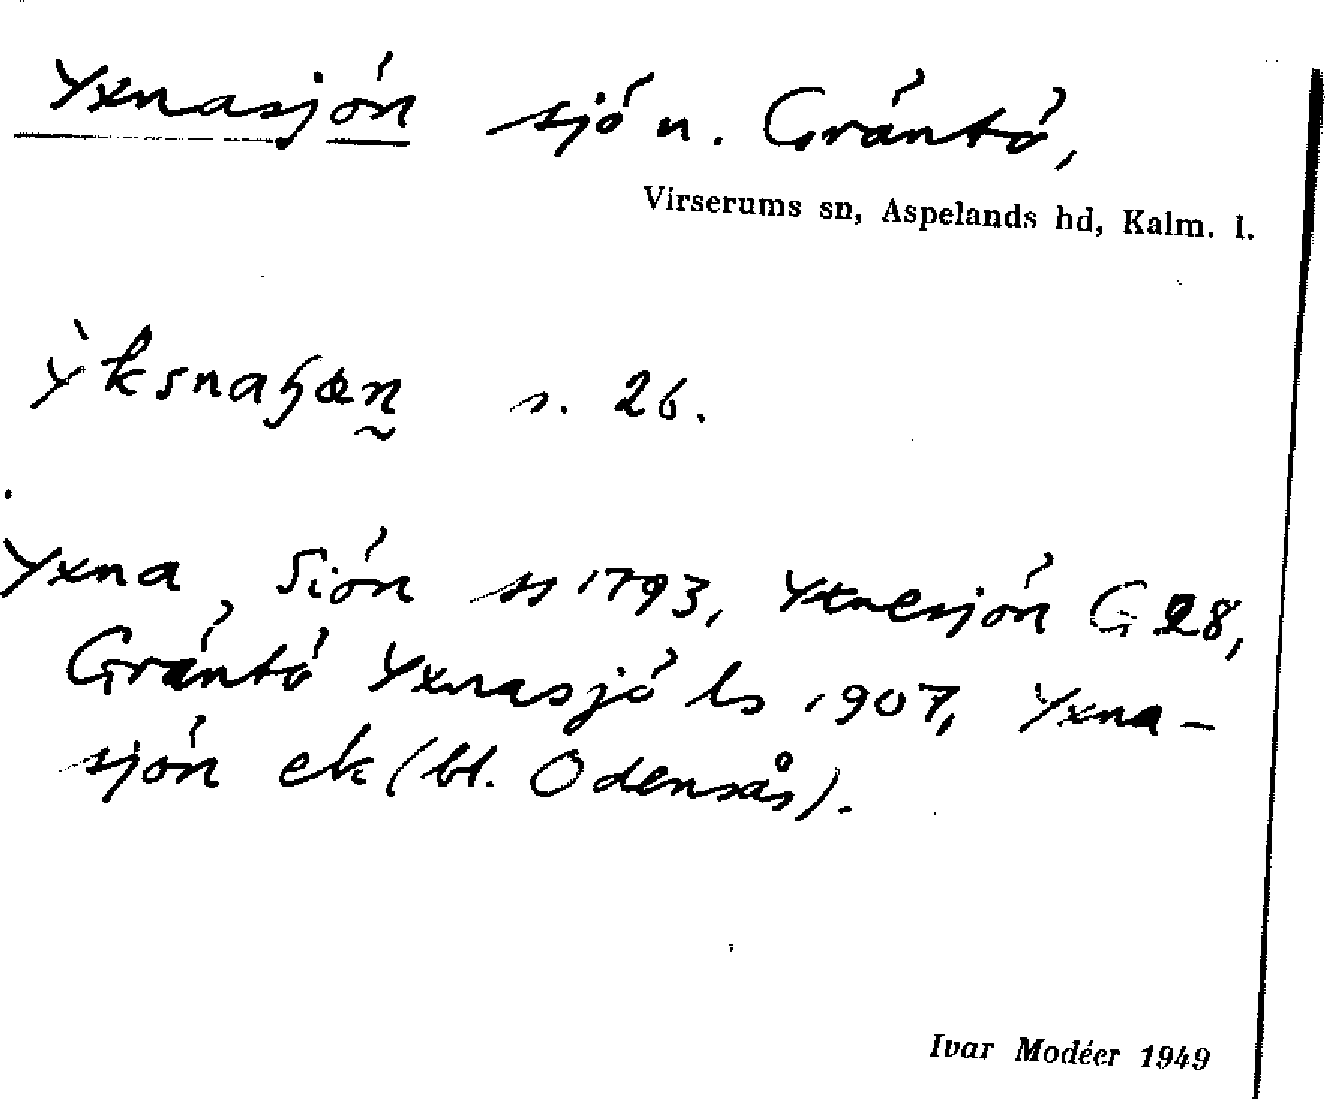 Yxnasjön sjö n. Gräntö,
Virserums sn, Aspelands hd, Kalm. l.
s. 26.
Yxna Siön ss 1793, Yxnesjön G 28,
Gräntö Yxnasjö ls 1907, Yxna-
sjön ek (bl. Odensås).
Ivar Modéer 1949